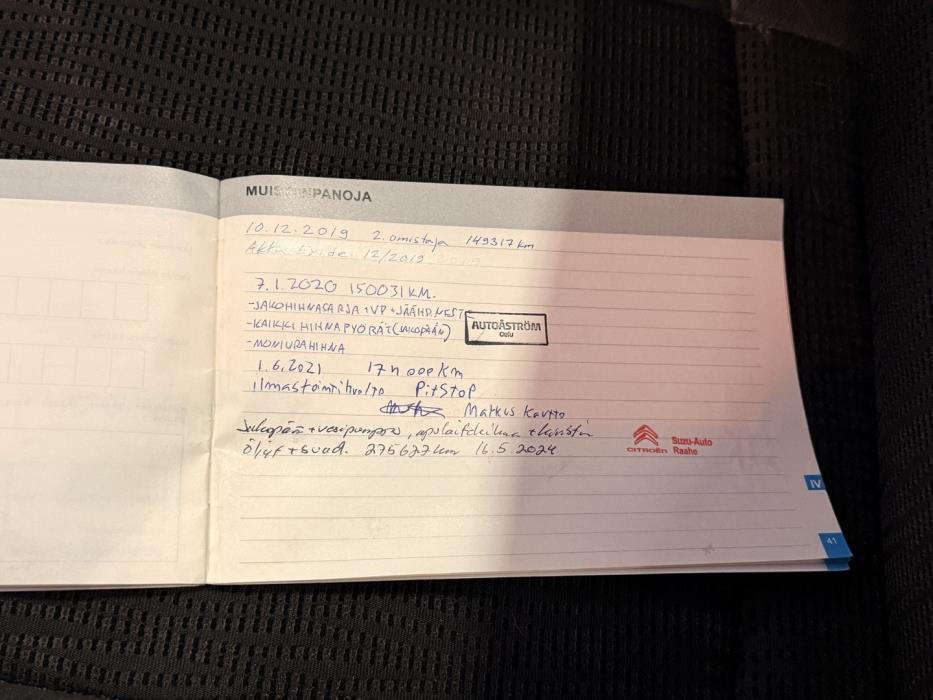 MUISTIINPANOJA
10.12.2019 2. omistaja 149317 km
Akku Exide 12/2019
7.1.2020 150031 KM.
-JAKOHIHNASARJA +VP +JÄÄHD.NEST
-KAIKKI HIHNAPYÖRÄT (JAKOPÄÄN)
-MONIURAHIHNA
AUTOÅSTRÖM
Oulu
1.6.2021 000 km
Ilmastointihuolto PitStop
Markus
Jakopää + vesipumppu, apulaitehihna + kiristin
Öljyt + suod. 275627 km 16.5.2024
CITROËN
Suzu-Auto
Raahe
IV
41